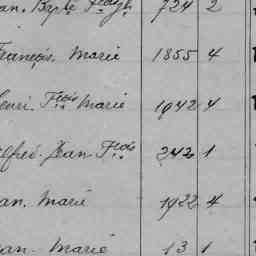 an. Bpte Fçois 724 2
François. Marie 1855 4
Henri Fçois Marie 1042 4
Alfred. Jean Fçois 242 1
an. Marie 1922 4
an. Marie 13 1